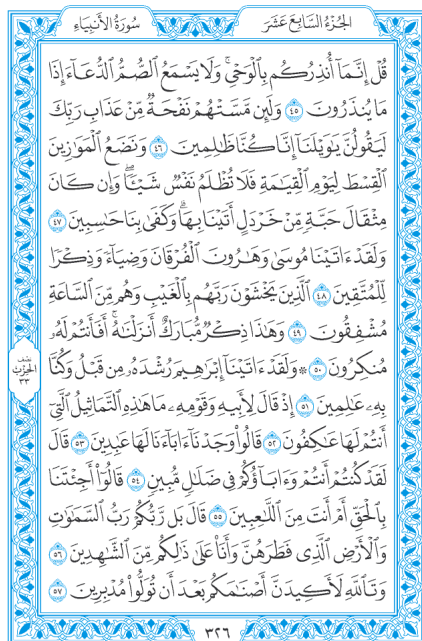 الجُزْءُ السَّابِعَ عَشَرَ
سُورَةُ الأَنبِيَاءِ
قُلْ إِنَّمَآ أُنذِرُكُم بِٱلْوَحْىِۚ وَلَا يَسْمَعُ ٱلصُّمُّ ٱلدُّعَآءَ إِذَا
مَا يُنذَرُونَ ٤٥ وَلَئِن مَّسَّتْهُمْ نَفْحَةٌ مِّنْ عَذَابِ رَبِّكَ
لَيَقُولُنَّ يَٰوَيْلَنَآ إِنَّا كُنَّا ظَٰلِمِينَ ٤٦ وَنَضَعُ ٱلْمَوَٰزِينَ
ٱلْقِسْطَ لِيَوْمِ ٱلْقِيَٰمَةِ فَلَا تُظْلَمُ نَفْسٌ شَيْـًٔاۖ وَإِن كَانَ
مِثْقَالَ حَبَّةٍ مِّنْ خَرْدَلٍ أَتَيْنَا بِهَاۗ وَكَفَىٰ بِنَا حَٰسِبِينَ ٤٧
وَلَقَدْ ءَاتَيْنَا مُوسَىٰ وَهَٰرُونَ ٱلْفُرْقَانَ وَضِيَآءً وَذِكْرًا
لِّلْمُتَّقِينَ ٤٨ ٱلَّذِينَ يَخْشَوْنَ رَبَّهُم بِٱلْغَيْبِ وَهُم مِّنَ ٱلسَّاعَةِ
مُشْفِقُونَ ٤٩ وَهَٰذَا ذِكْرٌ مُّبَارَكٌ أَنزَلْنَٰهُۚ أَفَأَنتُمْ لَهُۥ
مُنكِرُونَ ٥٠ ۞ وَلَقَدْ ءَاتَيْنَآ إِبْرَٰهِيمَ رُشْدَهُۥ مِن قَبْلُ وَكُنَّا
بِهِۦ عَٰلِمِينَ ٥١ إِذْ قَالَ لِأَبِيهِ وَقَوْمِهِۦ مَا هَٰذِهِ ٱلتَّمَاثِيلُ ٱلَّتِىٓ
أَنتُمْ لَهَا عَٰكِفُونَ ٥٢ قَالُوا۟ وَجَدْنَآ ءَابَآءَنَا لَهَا عَٰبِدِينَ ٥٣ قَالَ
لَقَدْ كُنتُمْ أَنتُمْ وَءَابَآؤُكُمْ فِى ضَلَٰلٍ مُّبِينٍ ٥٤ قَالُوٓا۟ أَجِئْتَنَا
بِٱلْحَقِّ أَمْ أَنتَ مِنَ ٱللَّٰعِبِينَ ٥٥ قَالَ بَل رَّبُّكُمْ رَبُّ ٱلسَّمَٰوَٰتِ
وَٱلْأَرْضِ ٱلَّذِى فَطَرَهُنَّ وَأَنَا۠ عَلَىٰ ذَٰلِكُم مِّنَ ٱلشَّٰهِدِينَ ٥٦
وَتَٱللَّهِ لَأَكِيدَنَّ أَصْنَٰمَكُم بَعْدَ أَن تُوَلُّوا۟ مُدْبِرِينَ ٥٧
نصف
الحزب
٣٣
٣٢٦